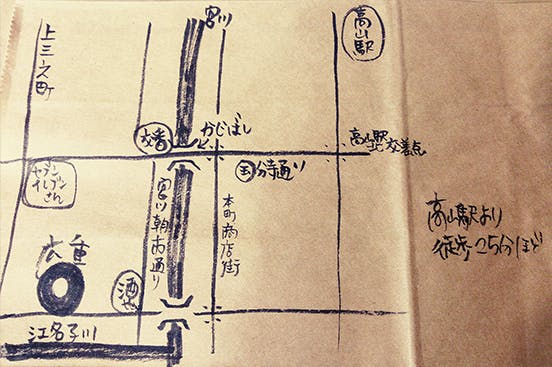 宮川
高山駅
上三之町
交番
かじばし
高山駅
交差点
セブン
イレブン
さん
国分寺通り
宮川朝市通り
本町商店街
高山駅より
徒歩25分ほど
広重
酒
江名子川